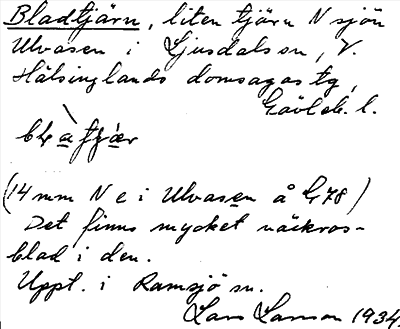 Bladtjärn, liten tjärn N sjön
Ulvasen i Ljusdals sn, V.
Hälsinglands domsagas tg,
Gävleb. l.
blàtjæ̀r
(14 mm N e i Ulvasen å G78)
Det finns mycket näckros-
blad i den.
Uppt. i Ramsjö sn.
Lars Larson 1934.